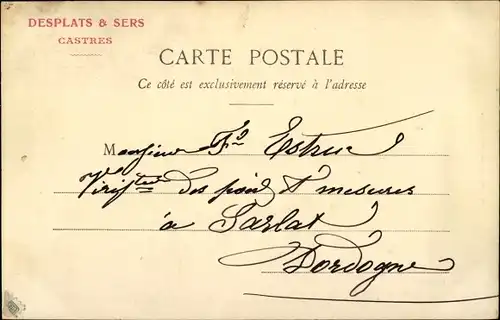 DESPLATS & SERS
CASTRES
CARTE POSTALE
Ce côté est exclusivement réservé à l'adresse
Monsieur Fd Estruc
Vérifteur des poids & mesures
à Sarlat
Dordogne